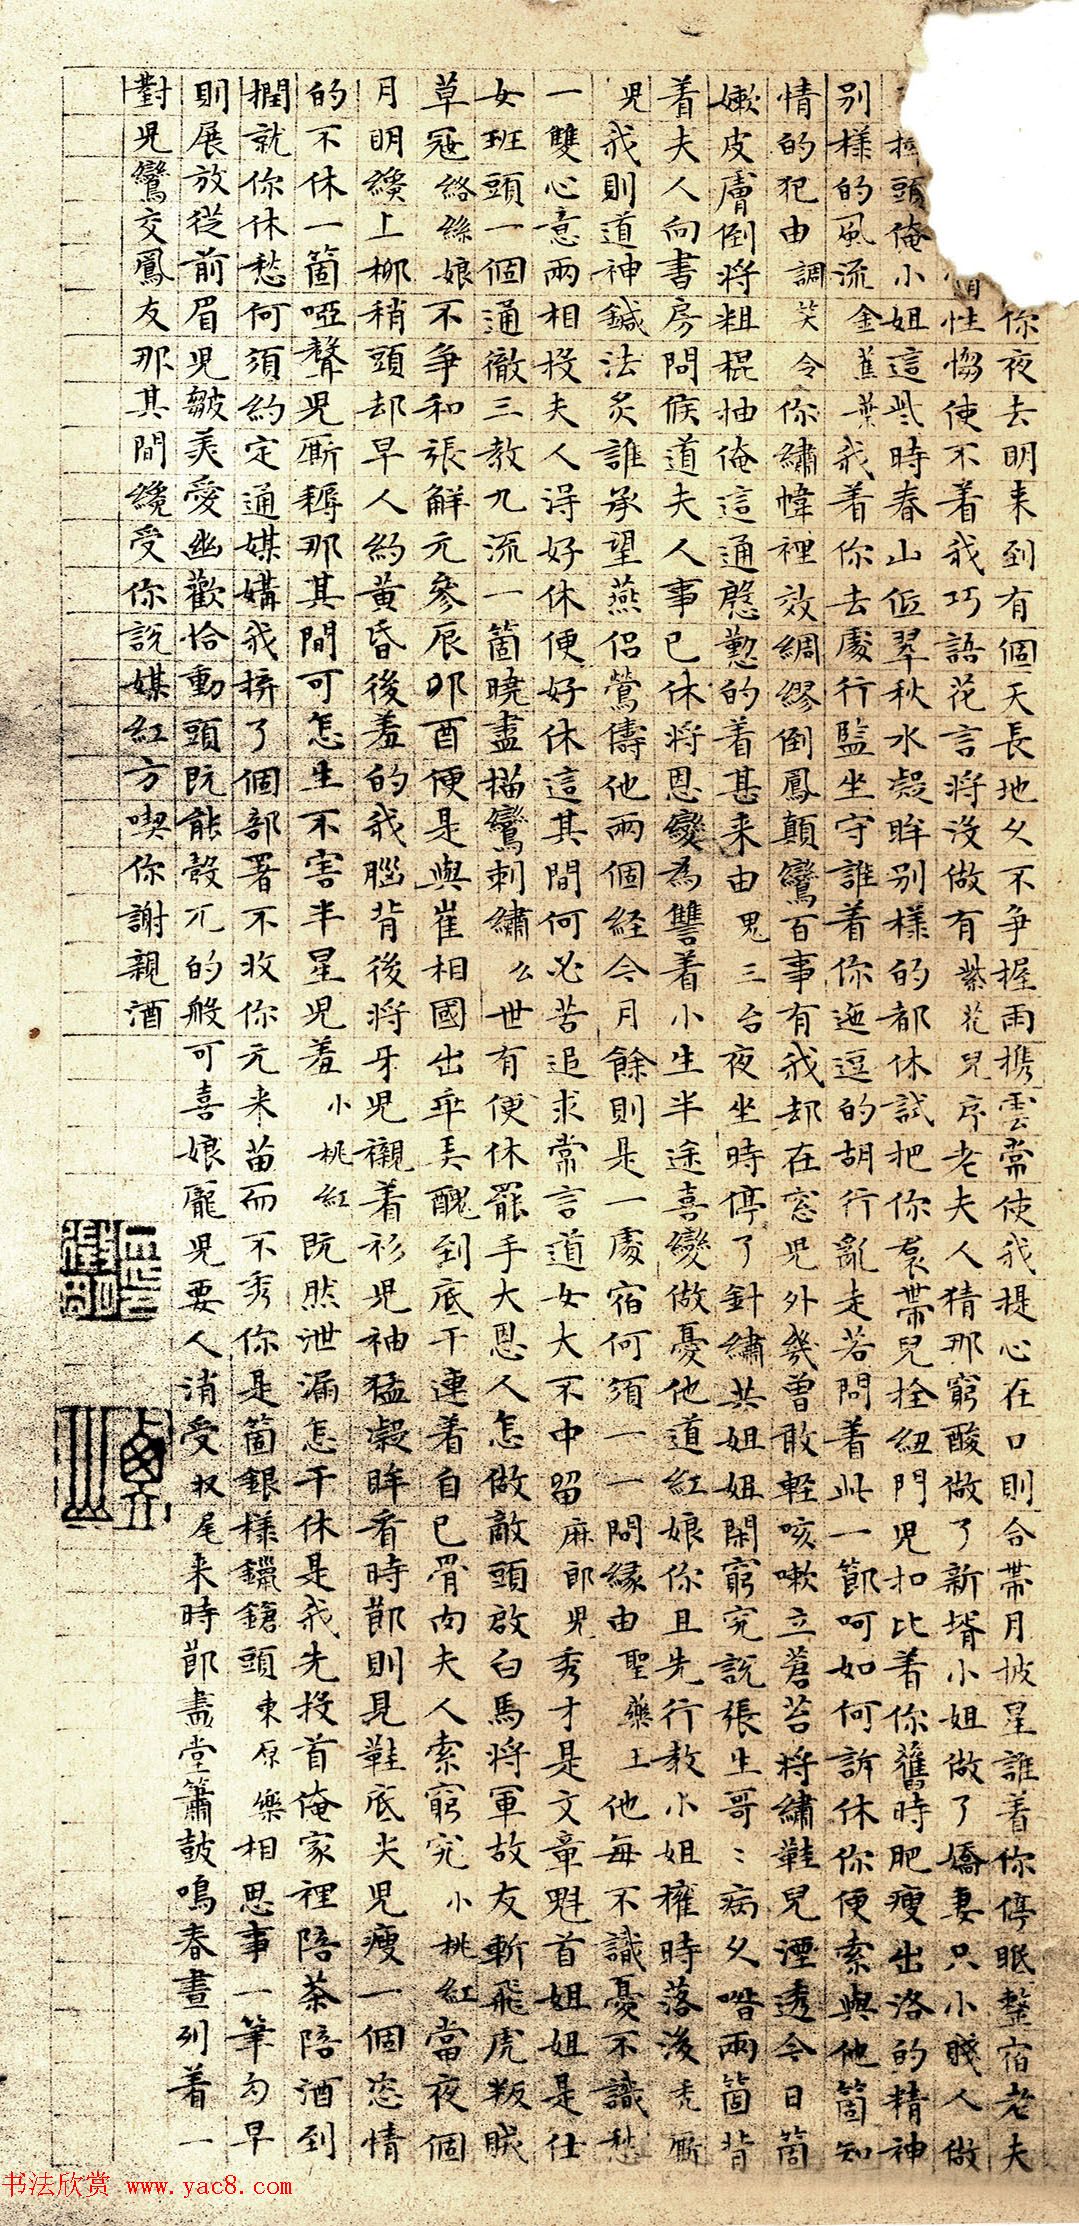 你夜去明来到有個天長地久不争握雨携雲常使我提心在口則合帶月披星誰着你停眠整宿老夫
性㑳使不着我巧語花言將没做有紫花兒序老夫人猜那窮酸做了新壻小姐做了嬌妻只小賤人做
頭俺小姐這些時春山低翠秋水凝眸別樣的都休試把你裙帶兒拴紐門兒扣比着你舊時肥瘦出洛的精神
別樣的風流金蕉葉我着你去處行監坐守誰着你迤逗的胡行亂走若問着此一節呵如何訴休你便索與他箇知
情的犯由調笑令你繡幃裡效綢繆倒鳳顛鸞百事有我却在窓兒外幾曾敢輕咳嗽立蒼苔將繡鞋兒湮透今日箇
嫩皮膚倒將粗棍抽俺這通慇懃的着甚来由鬼三台夜坐時停了針繡共姐姐閑窮究說張生哥ミ病久喒兩箇背
着夫人向書房問候道夫人事已休將恩變為讐着小生半途喜變做憂他道紅娘你且先行教小姐權時落後禿厮
兒我則道神鍼法炙誰承望燕侣鶯儔他兩個経今月餘則是一處宿何須一一問縁由聖藥王他每不識憂不識愁
一雙心意兩相投夫人淂好休便好休這其間何必苦追求常言道女大不中留麻郎兒秀才是文章魁首姐姐是仕
女班頭一個通徹三教九流一箇曉盡描鸞刺繡么世有便休罷手大恩人怎做敵頭啟白馬將軍故友斬飛虎叛賊
草寇絡絲娘不争和張解元參辰卯酉便是與崔相國出乖弄醜到底干連着自己骨肉夫人索窮究小桃紅當夜個
月明纔上柳稍頭却早人約黄昏後羞的我腦背後將牙兒襯着衫兒袖猛凝眸看時節則見鞋底尖兒瘦一個恣情
的不休一箇啞聲兒厮耨那其間可怎生不害半星兒羞小桃紅既然泄漏怎干休是我先投首俺家裡陪茶陪酒到
撋就你休愁何須約定通媒媾我擔了個部署不收你元来苗而不秀你是箇銀様鑞鎗頭東原樂相思事一筆勾早
則展放從前眉兒皺美愛幽歡恰動頭既能彀兀的般可喜娘龎兒要人消受收尾来時節畫堂簫鼓鳴春晝列着一
對兒鸞交鳳友那其間纔受你說媒紅方喫你謝親酒
书法欣赏 www.yac8.com